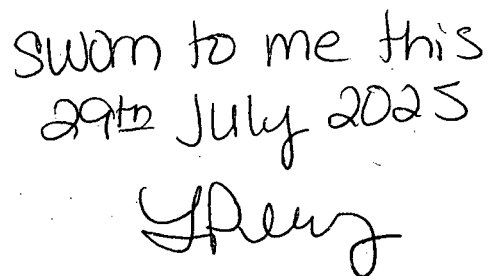 sworn to me this
29th July 2025